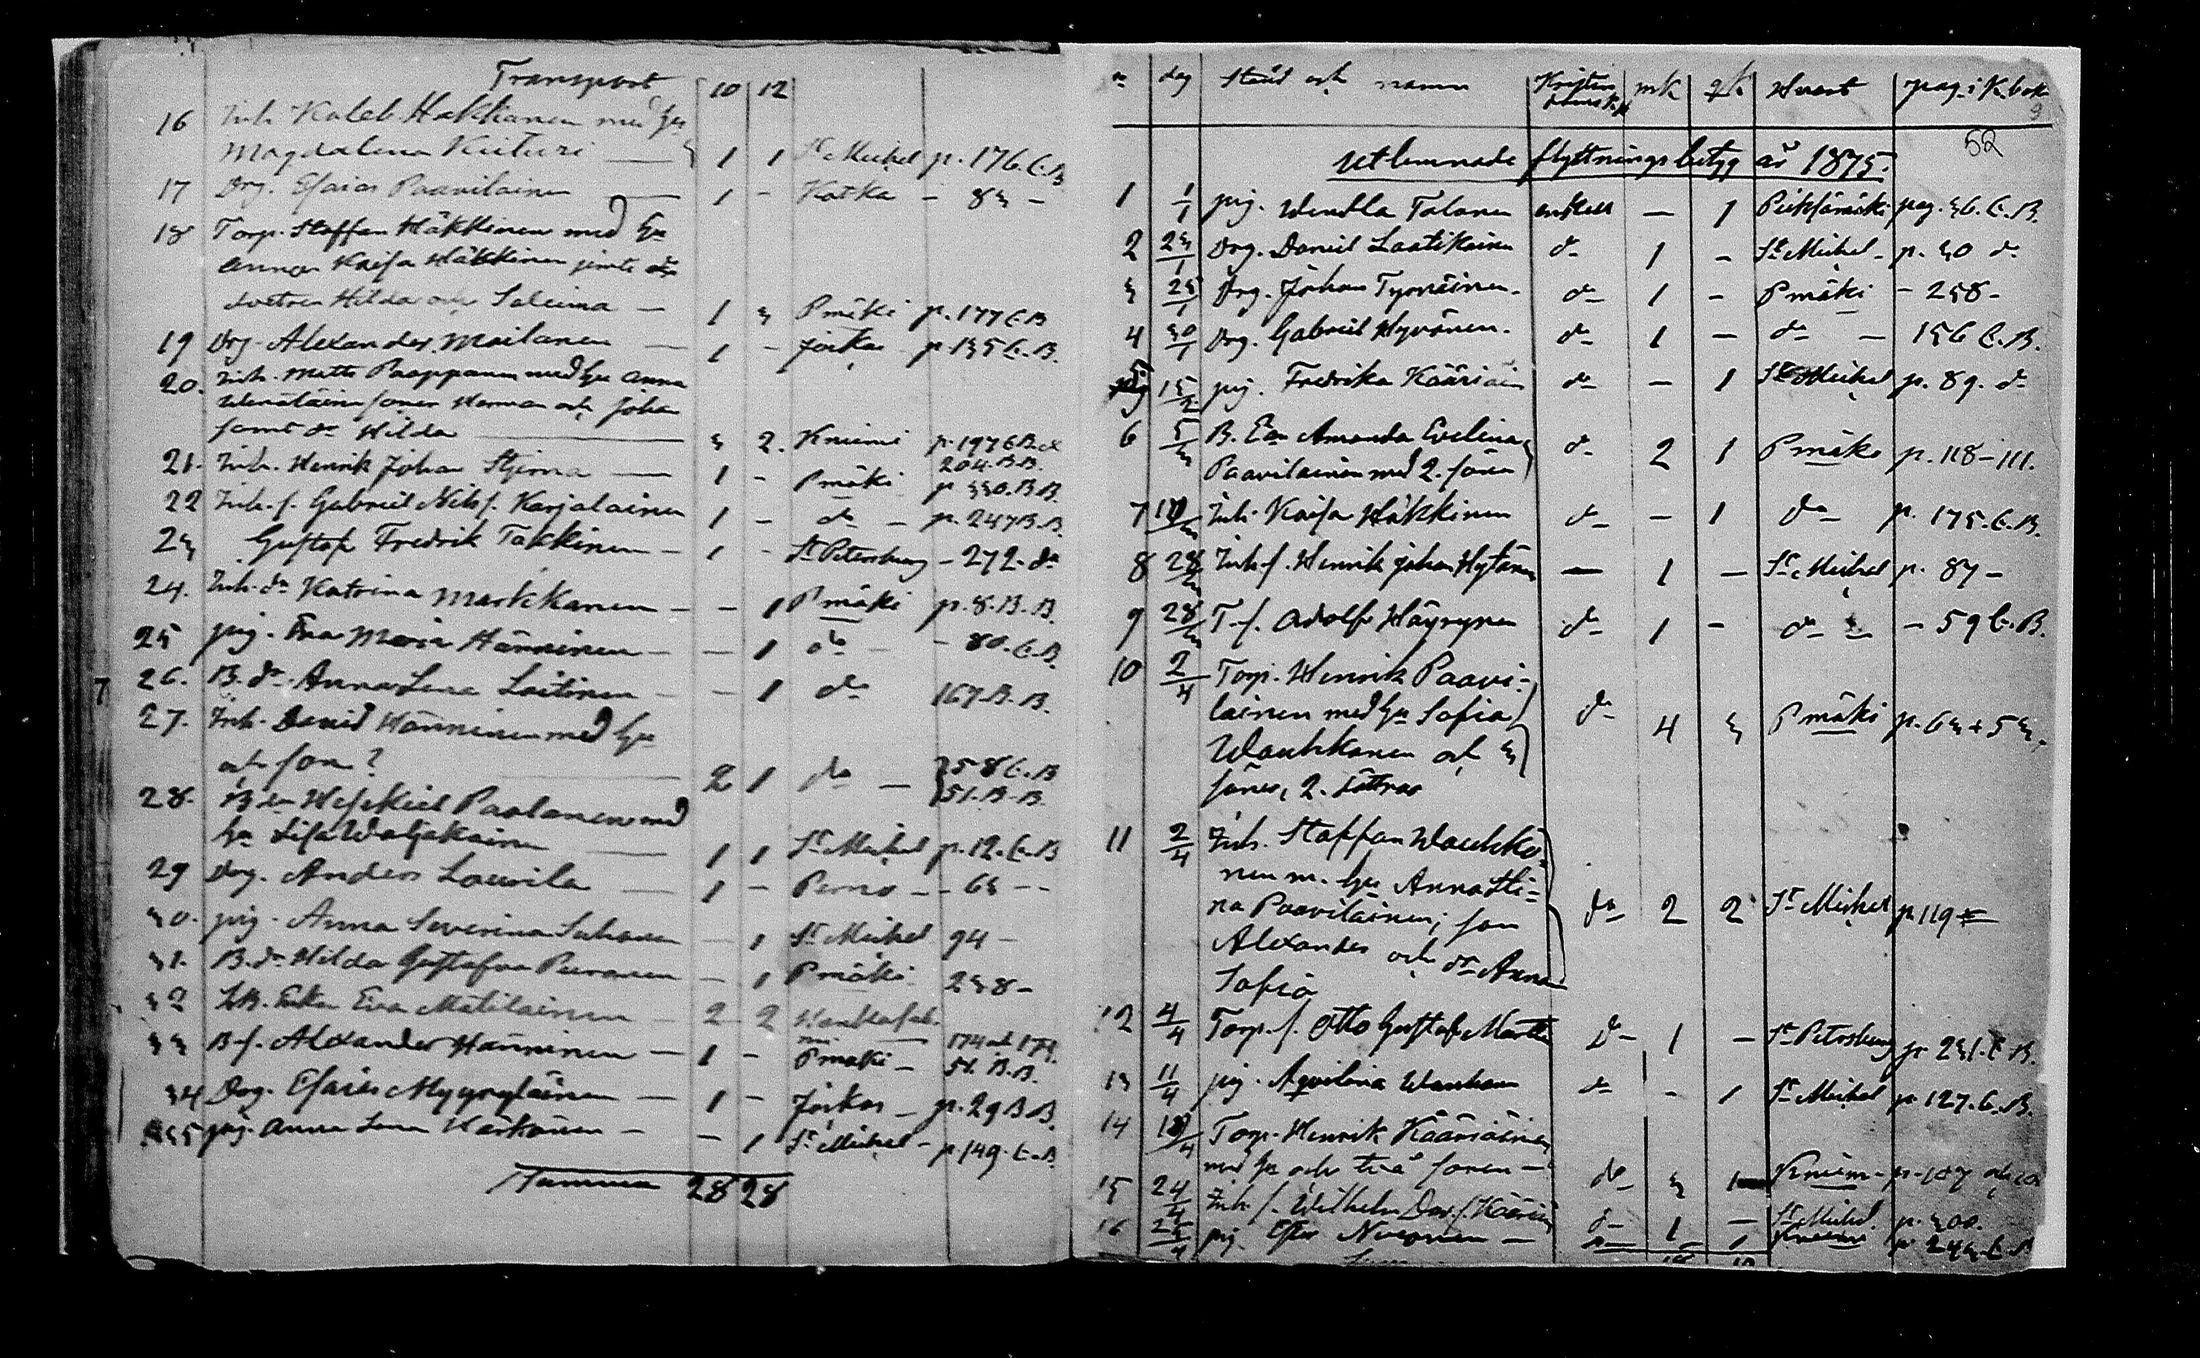 Transport 10 12
16 Inh. Kaleb Hakkanen med hu
Magdalena Kiituri — 1 1 St Michel p. 176.C.B
17 Drg. Esaias Paavilainen — 1 - Kotka - 83 -
18 Torp. Staffan Häkkinen med hu
Anna Kaisa Häkkinen jemte
döttrar Hilda och Selima — 1 3 Pmäki p. 177 C.B
19 Drg. Alexander Moilanen — 1 - Jorkas p. 135 C.B.
20. Inh. Matts Paappanen med hu Anna
söner Herman och Johan
samt dr Hilda — 3 2. Kniemi p. 197 C.B.
204. B.B.
21. Inh. Henrik Johan Stjerna — 1 - Pmäki p 330. B.B.
22 Inh. s. Gabriel Nils s. Karjalainen 1 - do - p. 247 B.B.
23 Gustaf Fredrik Takkinen - 1 - St Petersburg - 272. do
24. Inh. dr Katrina Markkanen - - 1 Pmäki p. 8. B. B.
25 pig. Eva Maria Hänninen - - 1 do - - 80. C.B.
26. B. dr. Anna Lena Laitinen - - 1 do 167. B. B.
27. Inh. David Hänninen med hu
och son? 2 1 do - 58 C.B
51. B. B.
28. B. Hesekiel Paalanen med
hu Lisa Waljakainen — 1 1 St Michel p. 12. C.B
29 Drg. Anders Laurila — 1 - Perno - - 63 - -
30. pig. Anna Severina Suhonen - 1 St Michel 94 -
31. B. dr Hilda Gustafva Puranen - 1 Pmäki 238 -
32 Enka Eva Matilainen - 2 2
174 och 179
33 B. s. Alexander Hänninen - 1 - Pmäki - 51. B.B.
34 Drg. Esaias Myyryläinen - 1 - Jorkas - p. 29 B.B.
35 pig. Anna Lena Härkönen - - 1 St Michel - p 149. C.B.
Summa 28 28
dag Stånd och namn Kristen mk qk Hvart pag. i K.bok
9
52
Utlemnade flyttningsbetyg år 1875.
1 1/1 pig. Wendla Tolonen — 1 pag. 36. C.B.
2 23/1 Drg. Daniel Laatikainen do 1 - St Michel - p. 30 do
3 25/1 Drg. Johan Tyrväinen. do 1 - Pmäki - 258 -
4 30/1 Drg. Gabriel Hyvönen. do 1 - do - 156 C.B.
5 15/2 pig. Fredrika Kääriäin do - 1 St Michel p. 89. do
6 5/3 B. Amanda Evelina
Paavilainen med 2. söner do 2 1 Pmäki p. 118 - 111.
7 Inh. Kaisa Häkkinen do - 1 do p. 175. C.B.
8 28/3 Inh. s. Henrik Johan Hytönen — 1 - St Michel p. 87 -
9 28/3 T. s. Adolf Häyrynen do 1 - do - 59 C.B.
10 2/4 Torp. Henrik Paavi-
lainen med hu Sofia
Wauhkonen och 3 do 4 3 Pmäki p. 63 + 53.
söner, 2. döttrar
11 2/4 Inh. Staffan Wauhko-
nen m. hu Anna Sti-
na Paavilainen; son do 2 2 St Michel p 119
Alexander och dr Anna
Sofia
12 4/4 Torp. s. Otto Gustaf do 1 - St Petersburg p 231. C.B.
13 11/4 pig. Aqvilina Wauhkonen do - 1 St Michel p 127. C.B.
14 Torp. Henrik Kääriäinen
med hu och två söner - do 3 1 Kniemi - p. 107
15 24/4 Inh. s. Wilhelm Dav. s. Kääriäin do 1 - St Michel. p. 300.
16 pig. Ester - do - 1 Kniemi p 243. C.B